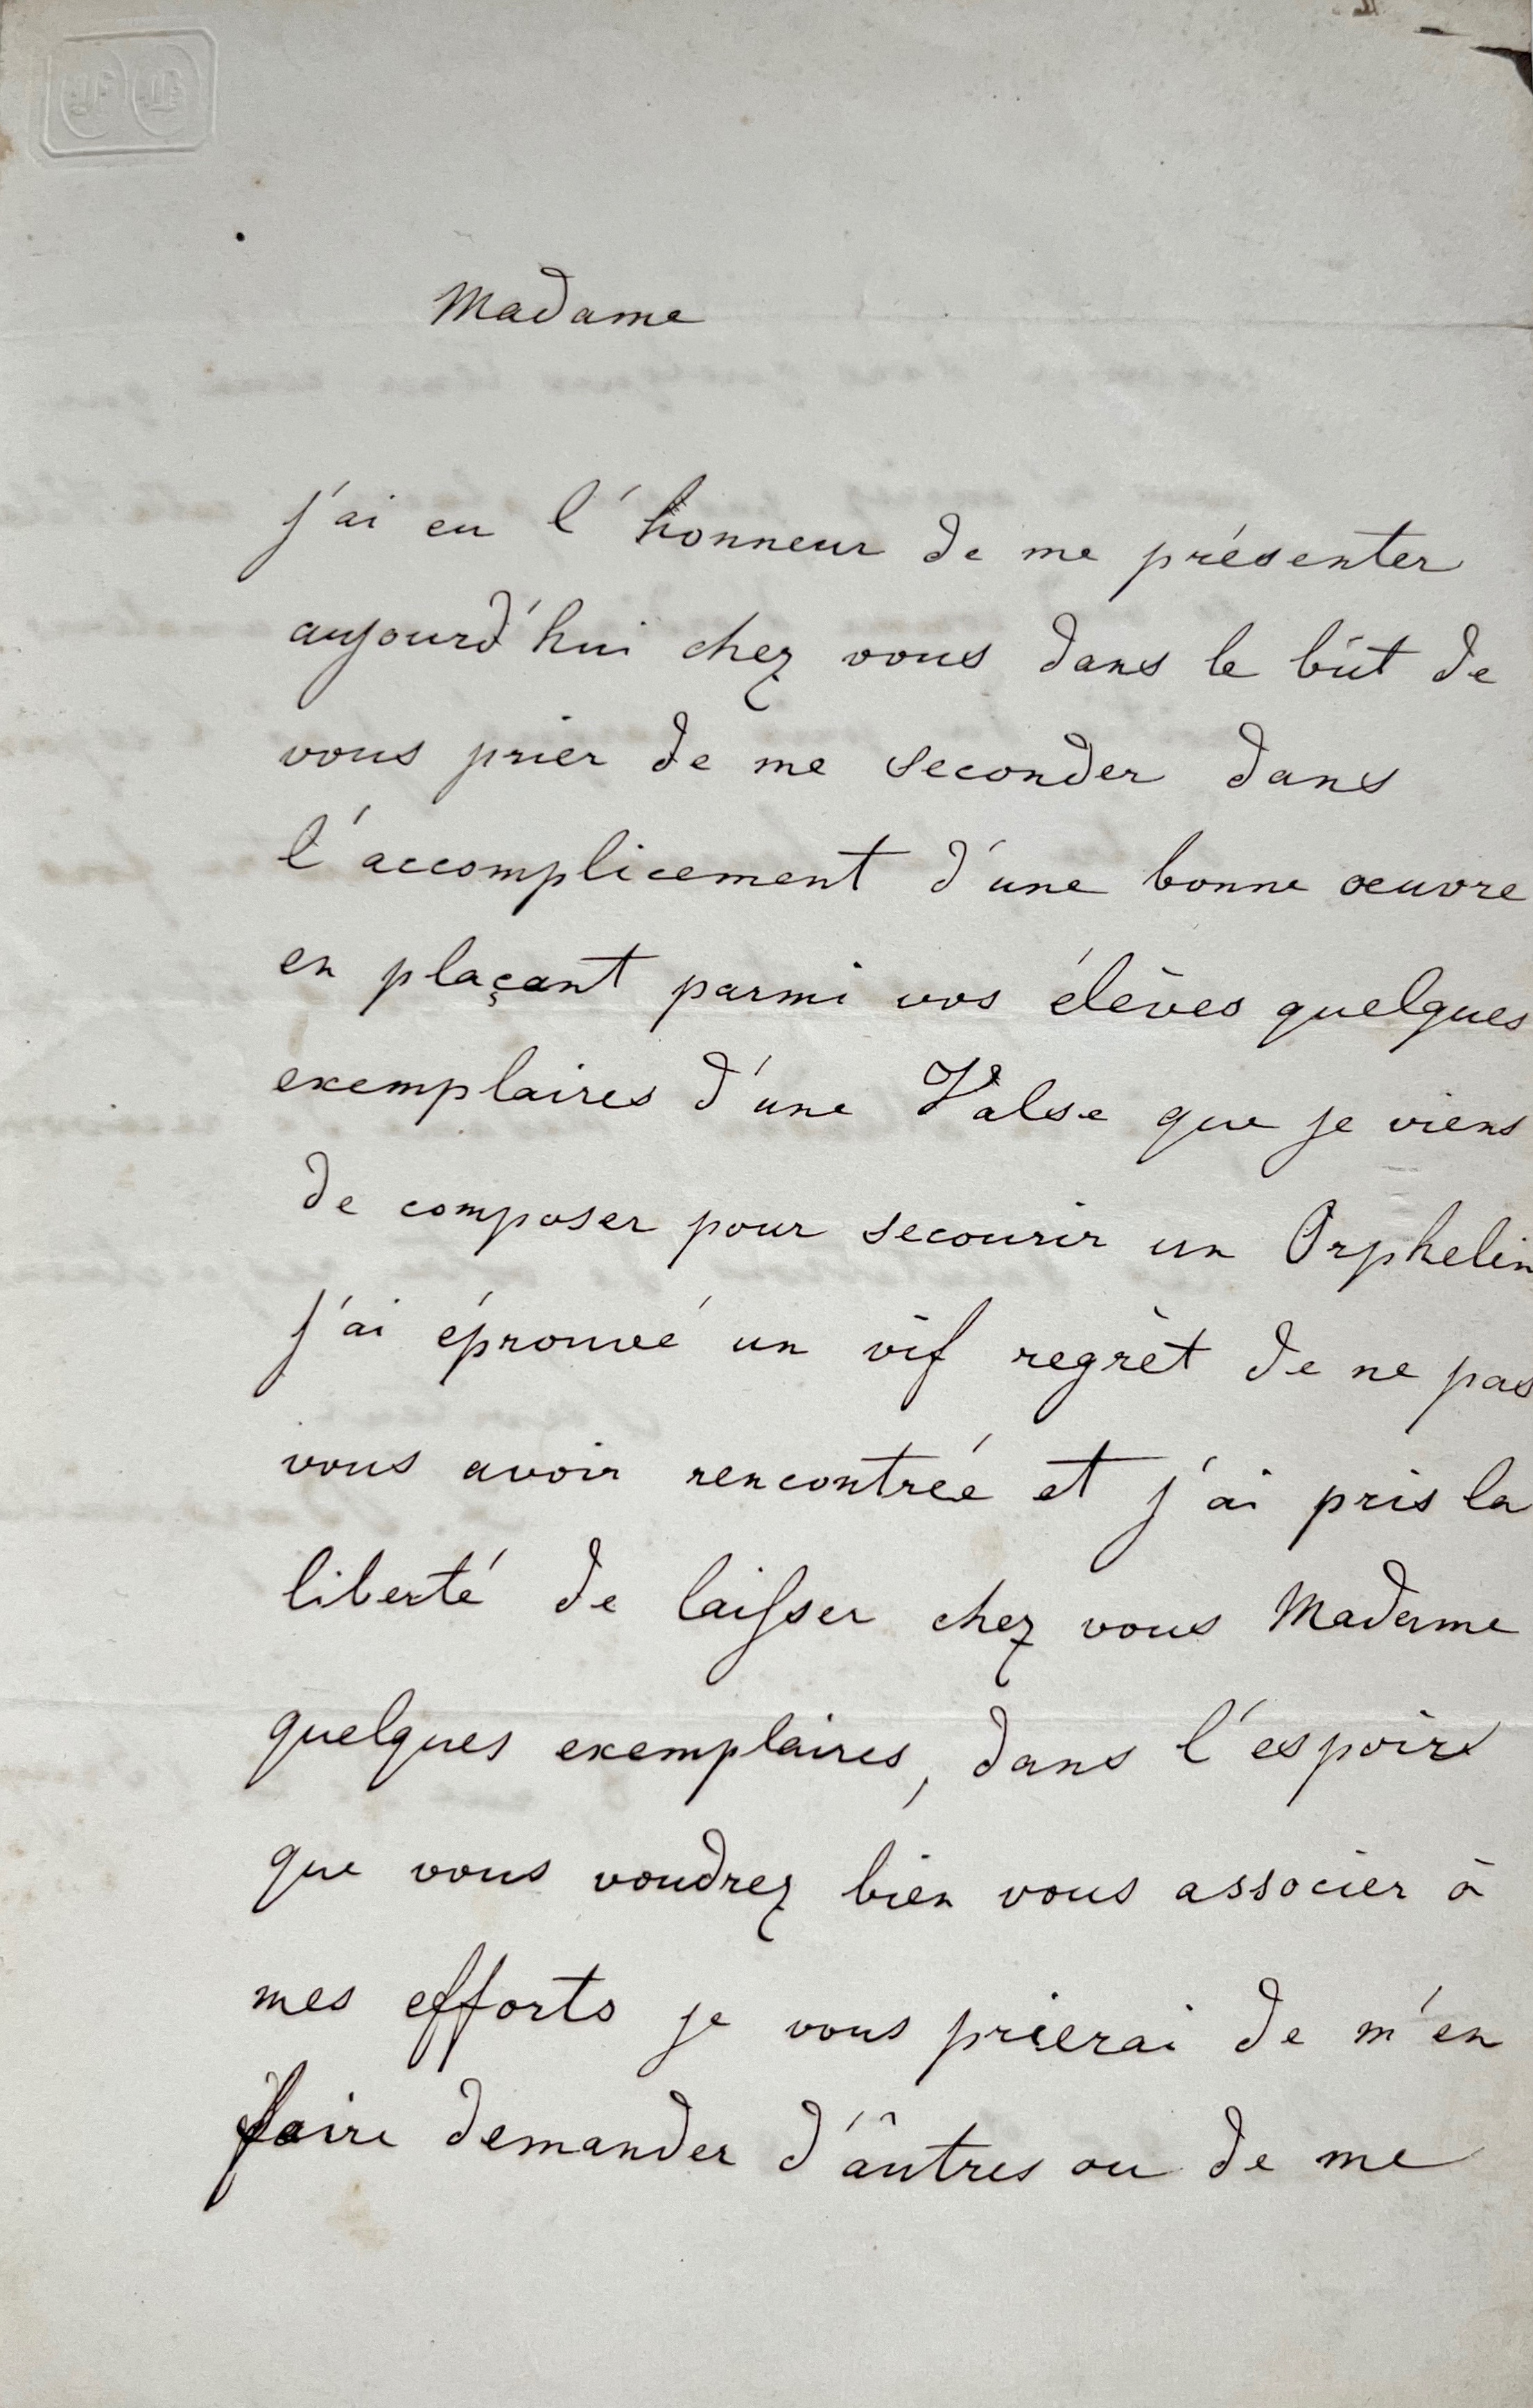 Madame
j'ai eu l'honneur de me présenter
aujourd'hui chez vous dans le bût de
vous prier de me seconder dans
l'accomplicement d'une bonne oeuvre
en plaçant parmi vos élèves quelques
exemplaires d'une Valse que je viens
de composer pour secourir un Orphelin
j'ai éprouvé un vif regrèt de ne pas
vous avoir rencontrée et j'ai pris la
liberté de laisser chez vous Madame
quelques exemplaires, dans l'espoir
que vous voudrez bien vous associer à
mes efforts je vous prierai de m'en
faire demander d'âutres ou de me